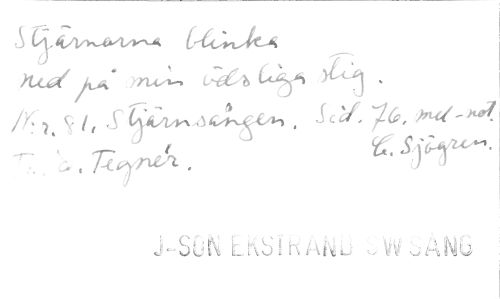 Stjärnorna blinka
ned på min ödsliga stig.
N:r. 81. Stjärnsången. Sid. 76. mel-not.
C. Sjögren.
Tegnér.
J-SON EKSTRAND SW SÅNG